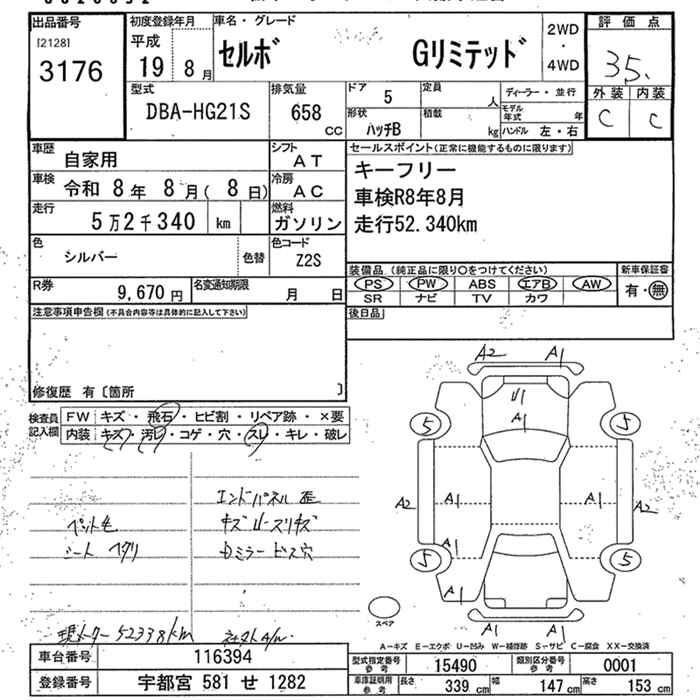 出品番号 初度登録年月 車名・グレード 評価点
[2128] 平成 セルボ Gリミテッド 2WD・4WD 35.
3176 19 8月 外装 内装
C C
型式 排気量 ドア 定員 ディーラー・並行
DBA-HG21S 658 CC 5 人 モデル年式 年
形状 積載 ハンドル 左・右
ハッチB kg
車歴 自家用 シフト AT セールスポイント(正常に機能するものに限ります)
車検 令和 8年 8月( 8日) 冷房 AC キーフリー
車検R8年8月
走行 5万2千340 km 燃料 ガソリン 走行52.340km
色 シルバー 色替 色コード Z2S
装備品(純正品に限り○をつけてください) 新車保証書
R券 9,670円 名変通知期限 月 日 PS PW ABS エアB AW 有・無
SR ナビ TV カワ
注意事項申告欄(不具合内容等は具体的に記入して下さい) 後日品
修復歴 有〔箇所 〕
検査員記入欄 FW キズ・飛石・ヒビ割・リペア跡・×要
内装 キズ・汚レ・コゲ・穴・スレ・キレ・破レ
A2 A1
U1
A1
5 5
A2 A1 A1 A2
A1
5 5
A1
A1 A1
エンドパネル 歪
ペット毛 キズ
シート ヘタリ ミラー ビス穴
現メーター52338km 社外A/W
スペア
A-キズ E-エクボ U-凹み W-補修跡 S-サビ C-腐食 XX-交換済
車台番号 116394 型式指定番号 参考 15490 類別区分番号 参考 0001
登録番号 宇都宮 581 せ 1282 車庫証明用 参考 長さ 339cm 幅 147cm 高さ 153cm